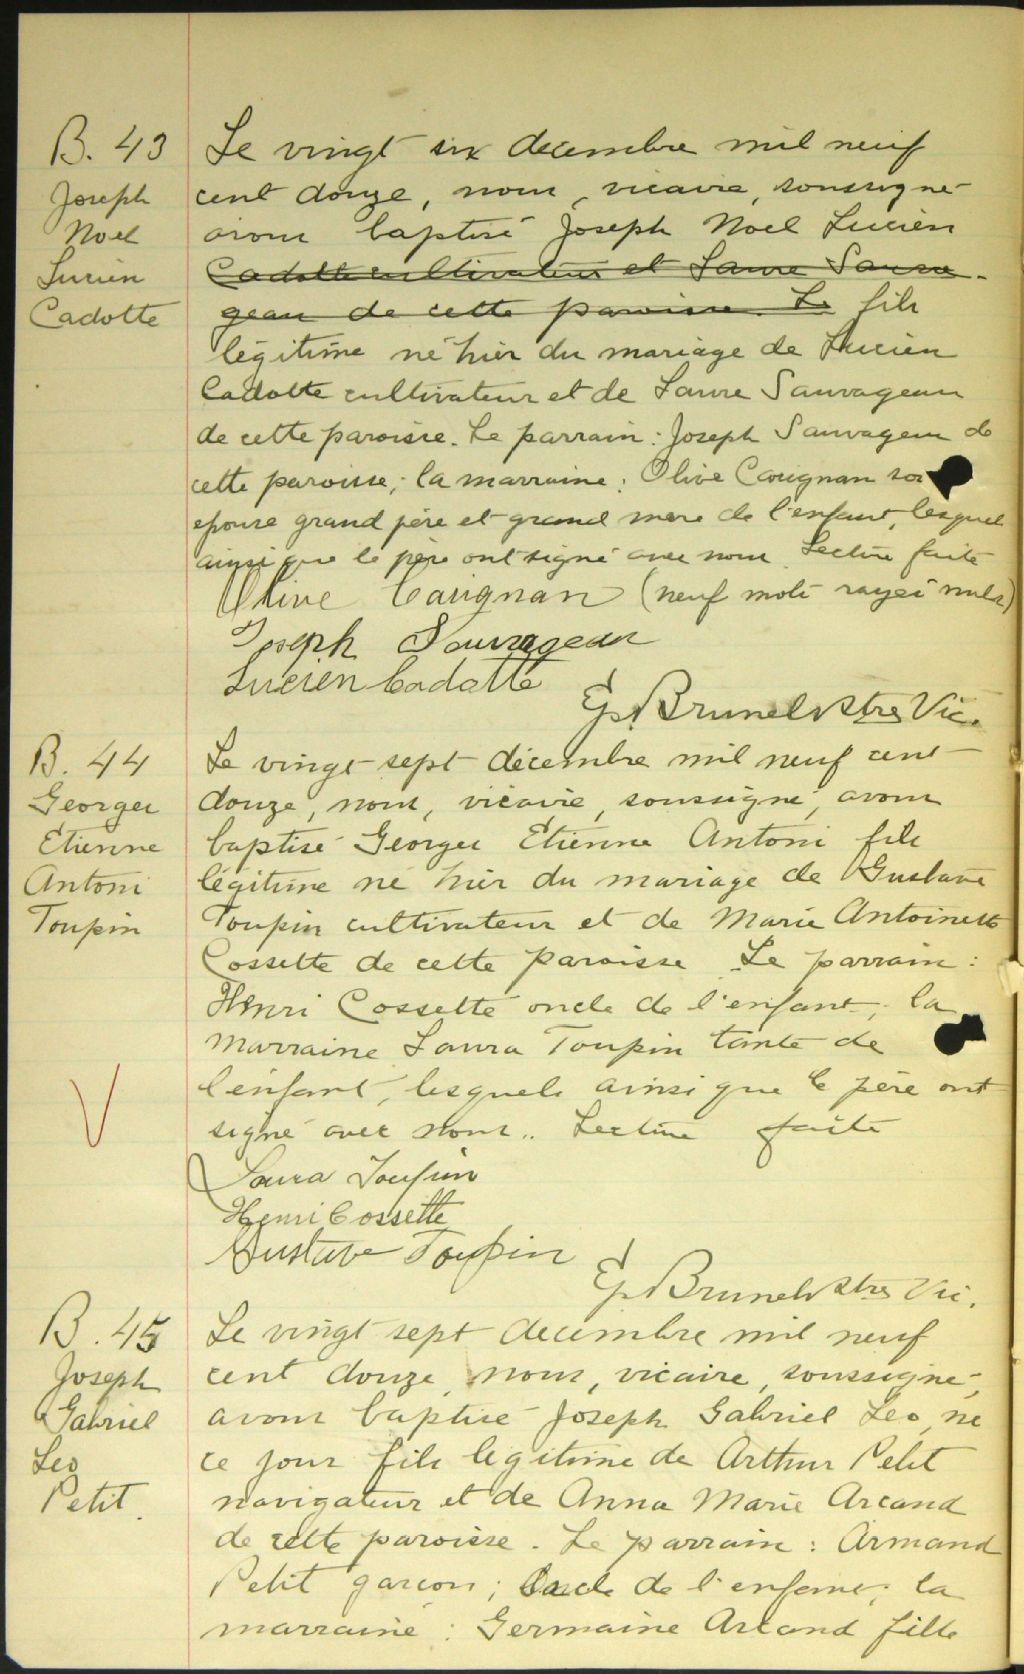 B. 43
Joseph
Noel
Lucien
Cadotte
Le vingt six decembre mil neuf
cent douze, nous, vicaire, soussigné
avons baptisé Joseph Noel Lucien
Cadotte cultivateur et Laure Sauva-
geau de cette paroisse. Le fils
légitime né hier du mariage de Lucien
Cadotte cultivateur et de Laure Sauvageau
de cette paroisse. Le parrain: Joseph Sauvageau de
cette paroisse; la marraine: Olive Carignan son
epouse grand père et grand mere de l'enfant, lesquels
ainsi que le père ont signé avec nous. Lecture faite
Olive Carignan (neuf mots rayés nuls)
Joseph Sauvageau
Lucien Cadotte
Ep. Brunel Ptre Vic.
B. 44
Georges
Etienne
Antoni
Toupin
Le vingt sept décembre mil neuf cent
douze, nous, vicaire, soussigné, avons
baptisé Georges Etienne Antoni fils
légitime né hier du mariage de Gustave
Toupin cultivateur et de Marie Antoinette
Cossette de cette paroisse. Le parrain:
Henri Cossette oncle de l'enfant; la
marraine Laura Toupin tante de
l'enfant, lesquels ainsi que le père ont
signé avec nous.. Lecture faite
Laura Toupin
Henri Cossette
Gustave Toupin
Ep. Brunel Ptre Vic.
B. 45
Joseph
Gabriel
Leo
Petit.
Le vingt sept decembre mil neuf
cent douze, nous, vicaire, soussigné,
avons baptisé Joseph Gabriel Leo, né
ce jour fils légitime de Arthur Petit
navigateur et de Anna Marie Arcand
de cette paroisse. Le parrain: Armand
Petit garcon; oncle de l'enfant; la
marraine: Germaine Arcand fille